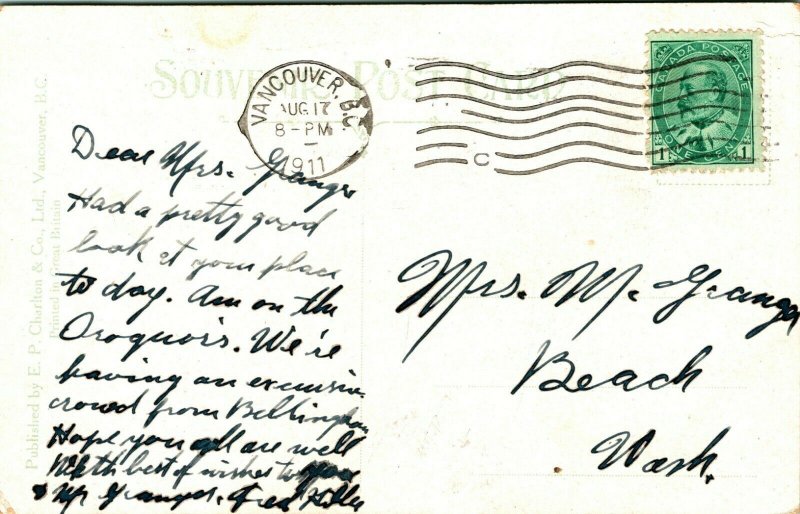 SOUVENIR POST CARD
VANCOUVER, B.C.
AUG 17
8-PM
1911
C
CANADA POSTAGE
ONE CENT
1 1
Published by E. P. Charlton & Co., Ltd., Vancouver, B.C.
Printed in Great Britain
Dear Mrs. Granger
Had a pretty good
look at your place
to day. Am on the
Oroquois. We're
having an excursion
crowd from Bellingham
Hope you all are well
With best of wishes to you
& Mr Granger. Fred
Mrs. M. Granger
Beach
Wash.